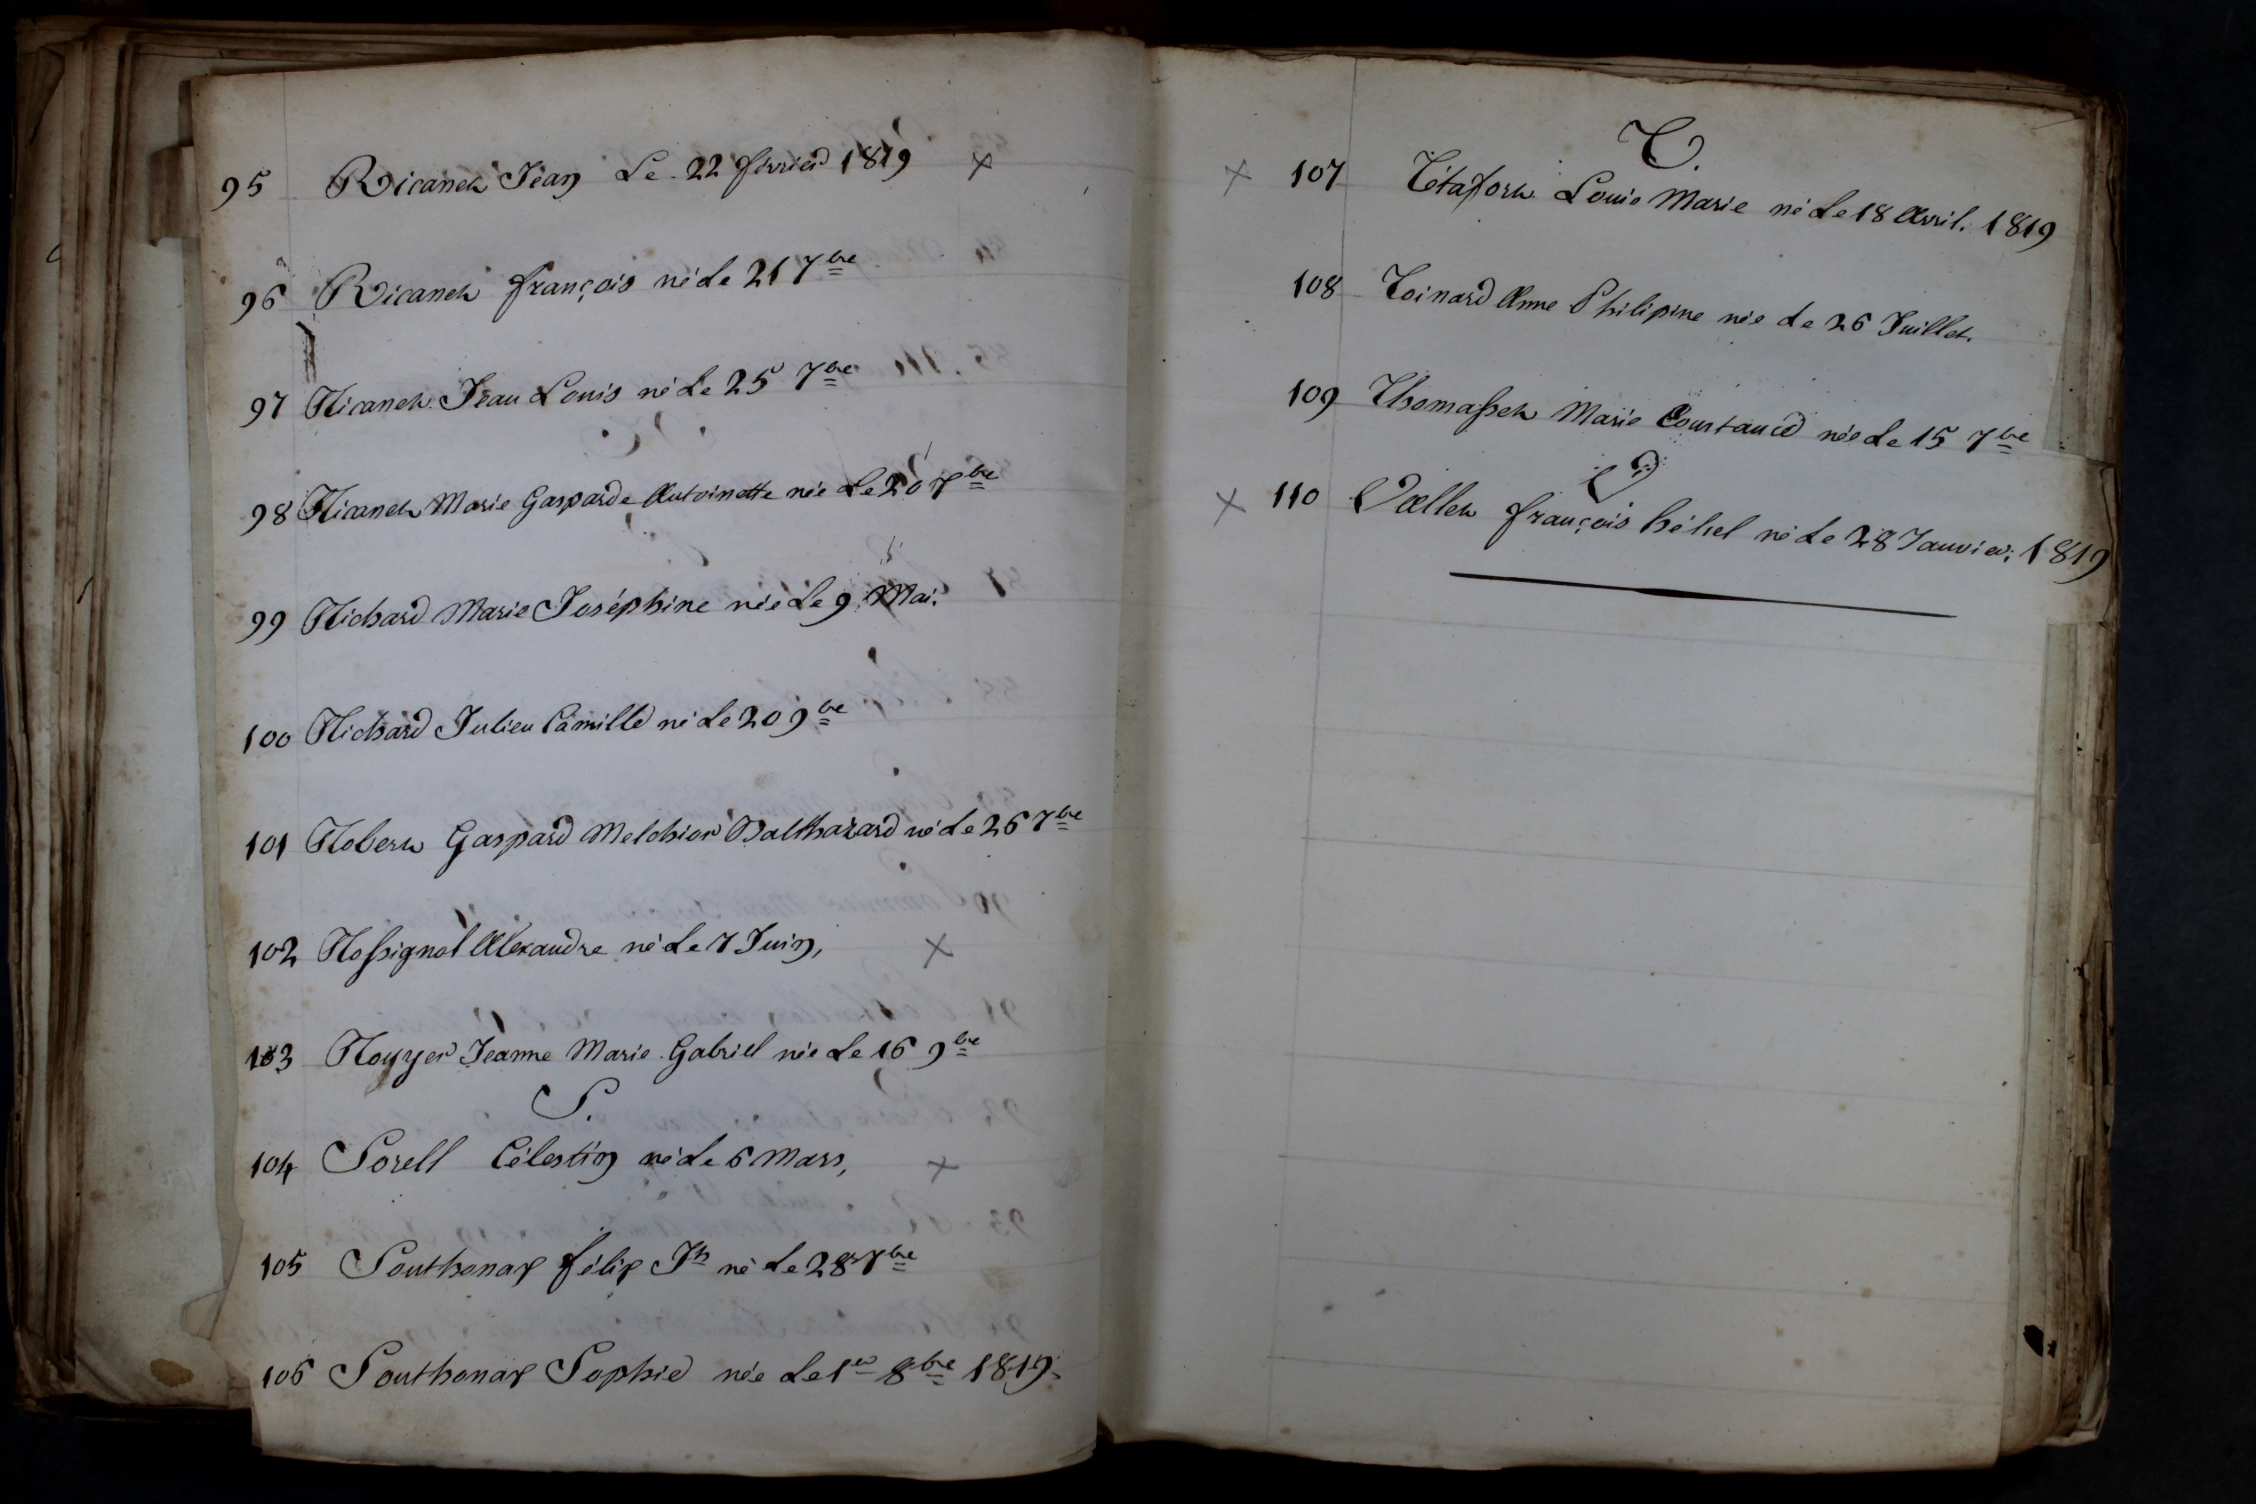 95 Ricanet Jean Le 22 février 1819 x
96 Ricanet françois né Le 21 7bre
97 Ricanet Jean Louis né Le 25 7bre
98 Ricanet Marie Gasparde Antoinette née Le 20 7bre
99 Richard Marie Joséphine née Le 9 Mai.
100 Richard Julien Camille né Le 20 9bre
101 Robert Gaspard Melchior Balthazard né Le 26 7bre
102 Rossignol Alexandre né Le 7 Juin, x
103 Rouyer Jeanne Marie Gabriel née Le 16 9bre
S.
104 Sorell Célestin né Le 6 Mars, x
105 Southonax félix Jh né Le 28 7bre
106 Southonax Sophie née Le 1er 8bre 1819.
T.
x 107 Tétafort Louis Marie né Le 18 Avril. 1819
108 Toinard Anne Philipine née Le 26 Juillet.
109 Thomasset Marie Constance née Le 15 7bre
V
x 110 Vallet françois né Le 28 Janvier; 1819